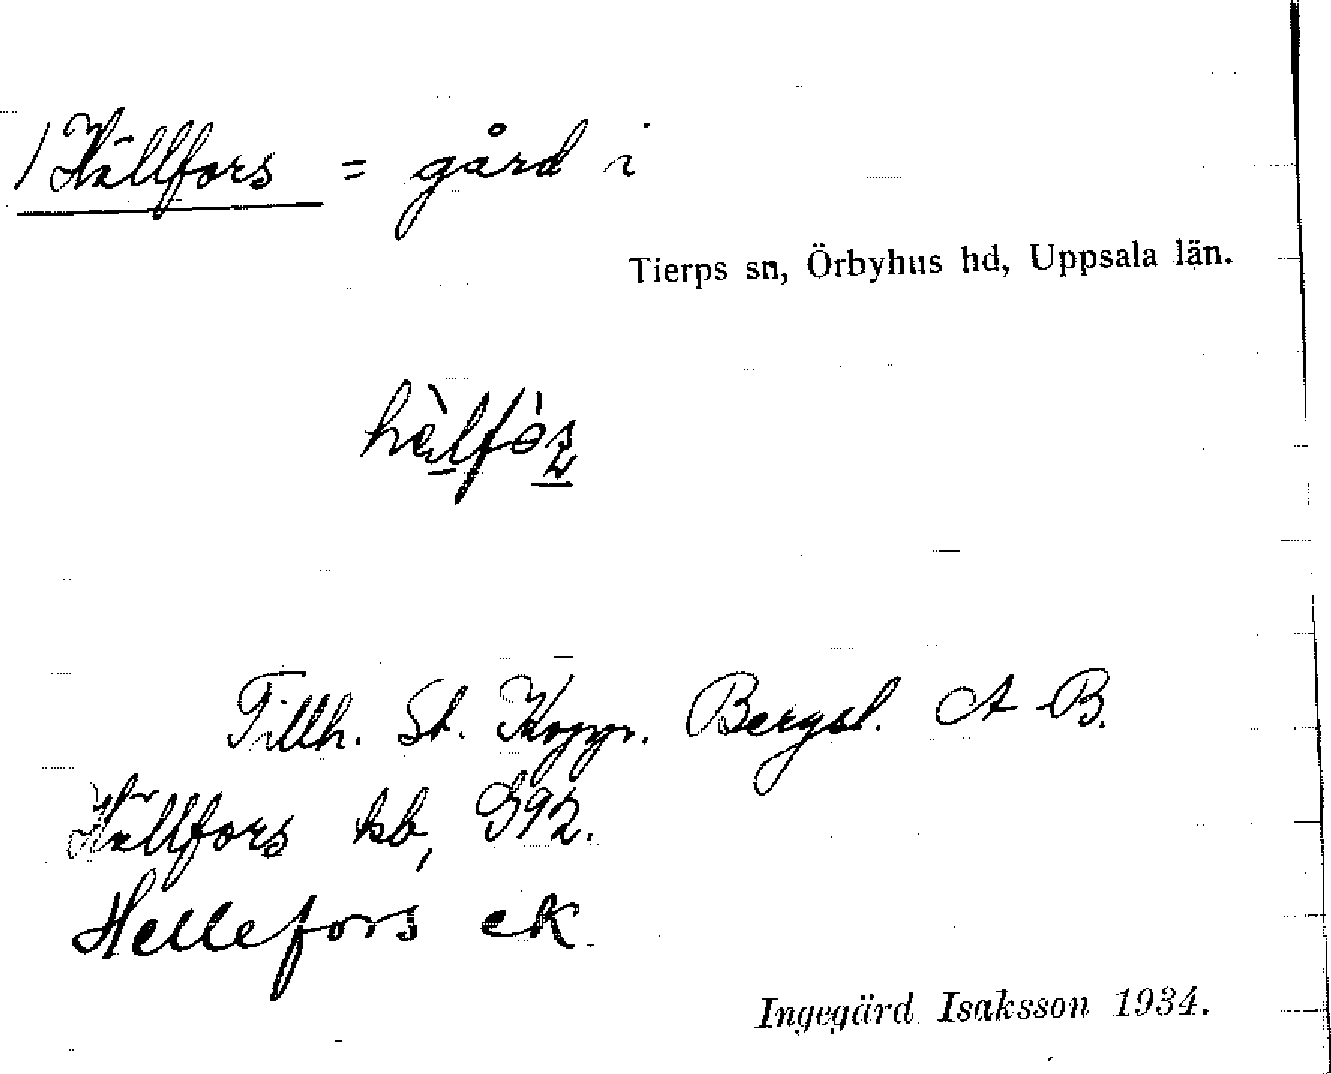 /Hällfors = gård i
Tierps sn, Örbyhus hd, Uppsala län.
Tillh. St. Koppr. Bergsl. A-B.
Hällfors kb, G92.
Hellefors ek.
Ingegärd Isaksson 1934.